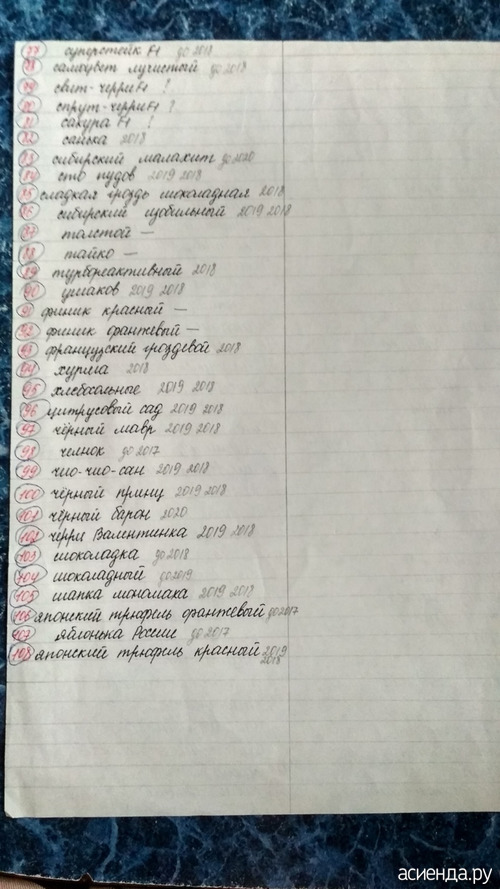 77 суперстейк F1 до 2018
78 самоцвет лучистый до 2018
79 свит-черри F1 ?
80 спрут-черри F1 ?
81 сакура F1 ?
82 санька 2018
83 сибирский малахит до 2020
84 сто пудов 2019 2018
85 сладкая гроздь шоколадная 2018
86 сибирский изобильный 2019 2018
87 толстой —
88 тайко —
89 турбореактивный 2018
90 ушаков 2019 2018
91 финик красный —
92 финик оранжевый —
93 французский гроздевой 2018
94 хурма 2018
95 хлебосольные 2019 2018
96 цитрусовый сад 2019 2018
97 чёрный мавр 2019 2018
98 челнок до 2017
99 чио-чио-сан 2019 2018
100 чёрный принц 2019 2018
101 чёрный барон 2020
102 черри Валентинка 2019 2018
103 шоколадка до 2018
104 шоколадный до 2019
105 шапка мономаха 2019 2018
106 японский трюфель оранжевый до 2017
107 яблонька России до 2017
108 японский трюфель красный 2019
2018
асиенда.ру